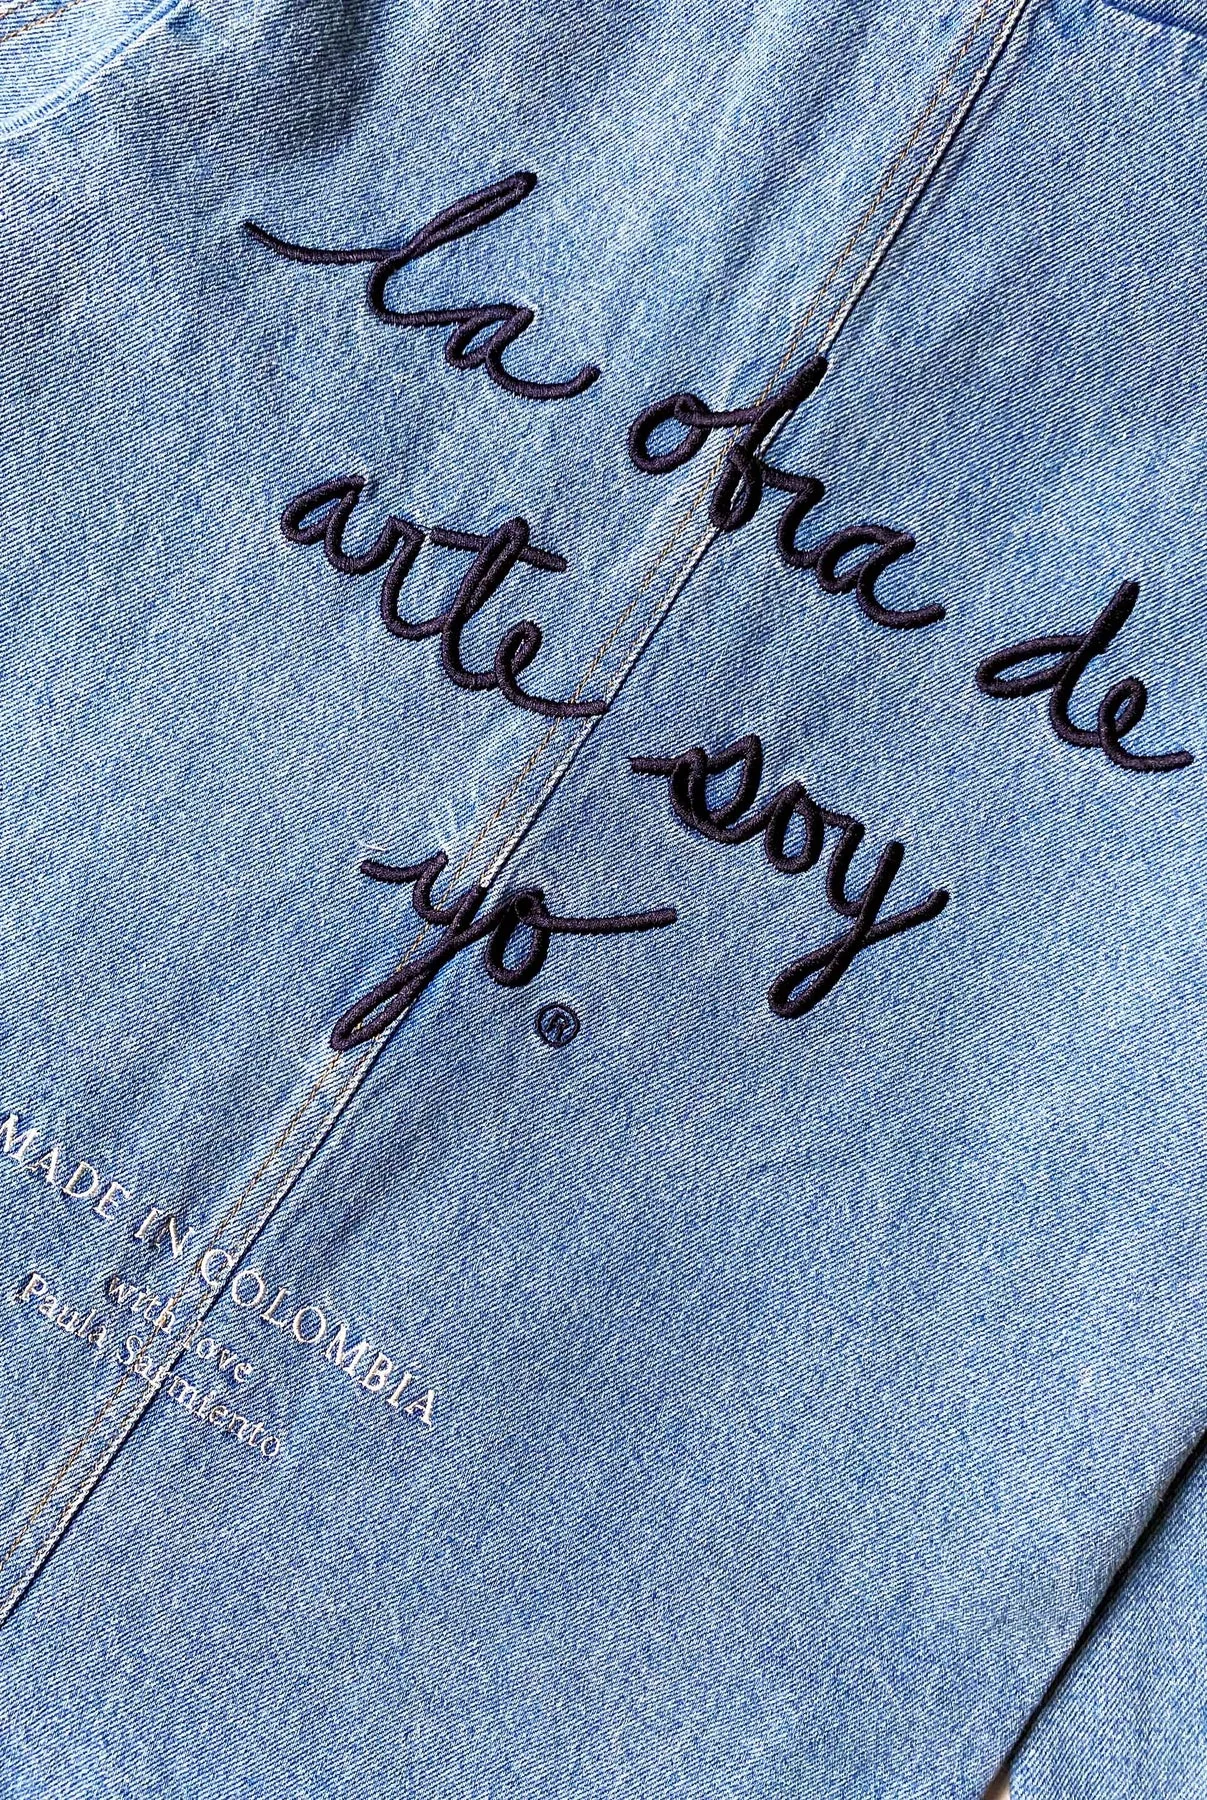 la obra de
arte soy
yo®
MADE IN COLOMBIA
with love
Paula Sarmiento